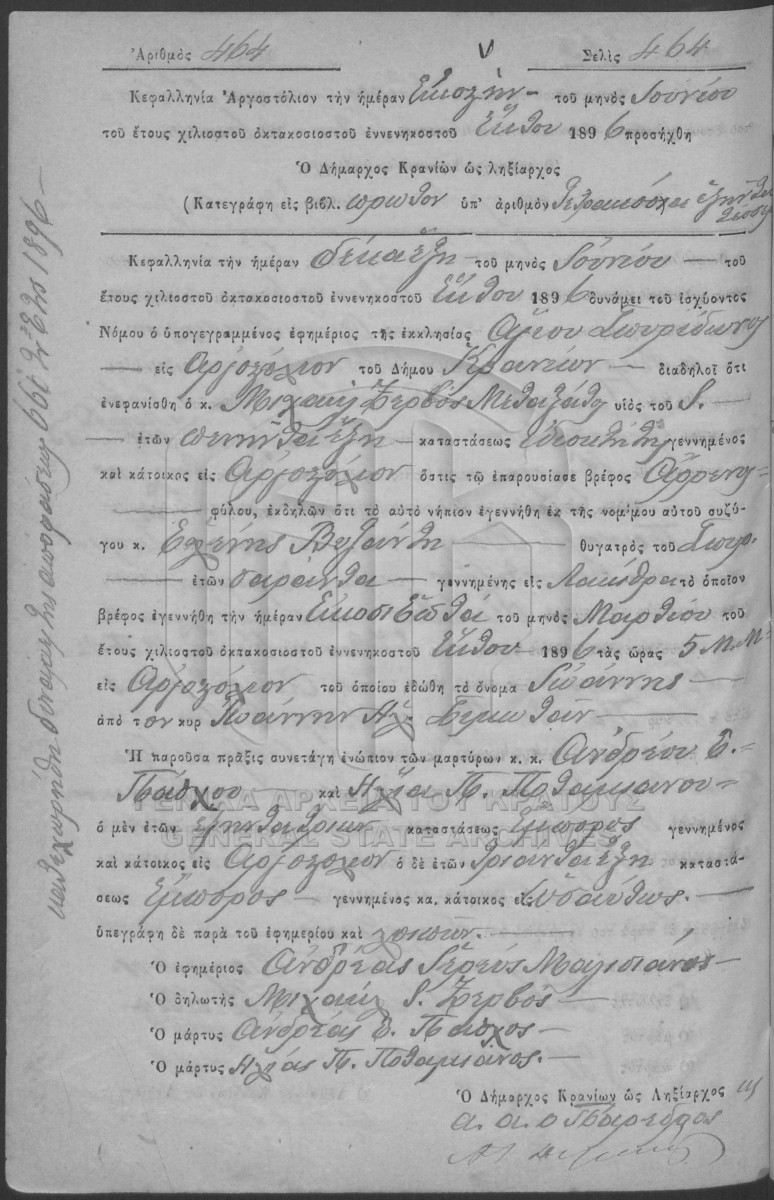 Ἀριθμὸς 464 Σελὶς 464
Κεφαλληνία Ἀργοστόλιον τὴν ἡμέραν τοῦ μηνὸς Ἰουνίου
τοῦ ἔτους χιλιοστοῦ ὀκτακοσιοστοῦ ἐννενηκοστοῦ ἕκτου 1896 προσήχθη
Ὁ Δήμαρχος Κρανίων ὡς ληξίαρχος
(Κατεγράφη εἰς βιβλ. πρῶτον ὑπ' ἀριθμὸν
Κεφαλληνία τὴν ἡμέραν δέκα ἕξη τοῦ μηνὸς Ἰουνίου τοῦ
ἔτους χιλιοστοῦ ὀκτακοσιοστοῦ ἐννενηκοστοῦ ἕκτου 1896 δυνάμει τοῦ ἰσχύοντος
Νόμου ὁ ὑπογεγραμμένος ἐφημέριος τῆς ἐκκλησίας Ἁγίου Σπυρίδωνος
εἰς Ἀργοστόλιον τοῦ Δήμου Κρανίων διαδηλοῖ ὅτι
ἐνεφανίσθη ὁ κ. Μιχαὴλ Φερβὸς Μεταξάτος υἱὸς τοῦ
ἐτῶν πενῆντα ἕξη καταστάσεως γεννημένος
καὶ κάτοικος εἰς Ἀργοστόλιον ὅστις τῷ ἐπαρουσίασε βρέφος ἄρρενος
φύλου, ἐκδηλῶν ὅτι τὸ αὐτὸ νήπιον ἐγεννήθη ἐκ τῆς νομίμου αὐτοῦ συζύ-
γου κ. Ἑλένης θυγατρὸς τοῦ Σπυρ.
ἐτῶν σαράντα γεννημένης εἰς Λακύθρα τὸ ὁποῖον
βρέφος ἐγεννήθη τὴν ἡμέραν εἴκοσι ἑπτὰ τοῦ μηνὸς Μαρτίου τοῦ
ἔτους χιλιοστοῦ ὀκτακοσιοστοῦ ἐννενηκοστοῦ ἕκτου 1896 τὰς ὥρας 5 Μ.Μ.
εἰς Ἀργοστόλιον τοῦ ὁποίου ἐδώθη τὸ ὄνομα Ἰωάννης
ἀπὸ τὸν κυρ Ἰωάννην
Ἡ παροῦσα πρᾶξις συνετάγη ἐνώπιον τῶν μαρτύρων κ. κ. Ἀνδρέου
Πάσχου καὶ Ἠλία Π. Ποταμιάνου
ΓΕΝΙΚΑ ΑΡΧΕΙΑ ΤΟΥ ΚΡΑΤΟΥΣ
ὁ μὲν ἐτῶν ἑξῆντα τριῶν καταστάσεως ἔμπορος γεννημένος
GENERAL STATE ARCHIVES
καὶ κάτοικος εἰς Ἀργοστόλιον ὁ δὲ ἐτῶν τριάντα ἕξη καταστά-
σεως ἔμπορος γεννημένος κα. κάτοικος εἰς ὡσαύτως.
ὑπεγράφη δὲ παρὰ τοῦ ἐφημερίου καὶ λοιπῶν.
Ὁ ἐφημέριος Ἀνδρέας Ἱερεὺς
Ὁ δηλωτὴς Μιχαὴλ Φερβὸς
Ὁ μάρτυς Ἀνδρέας Πάσχος
Ὁ μάρτυς Ἠλίας Π. Ποταμιάνος.
Ὁ Δήμαρχος Κρανίων ὡς Ληξίαρχος
ὁ Πάρεδρος